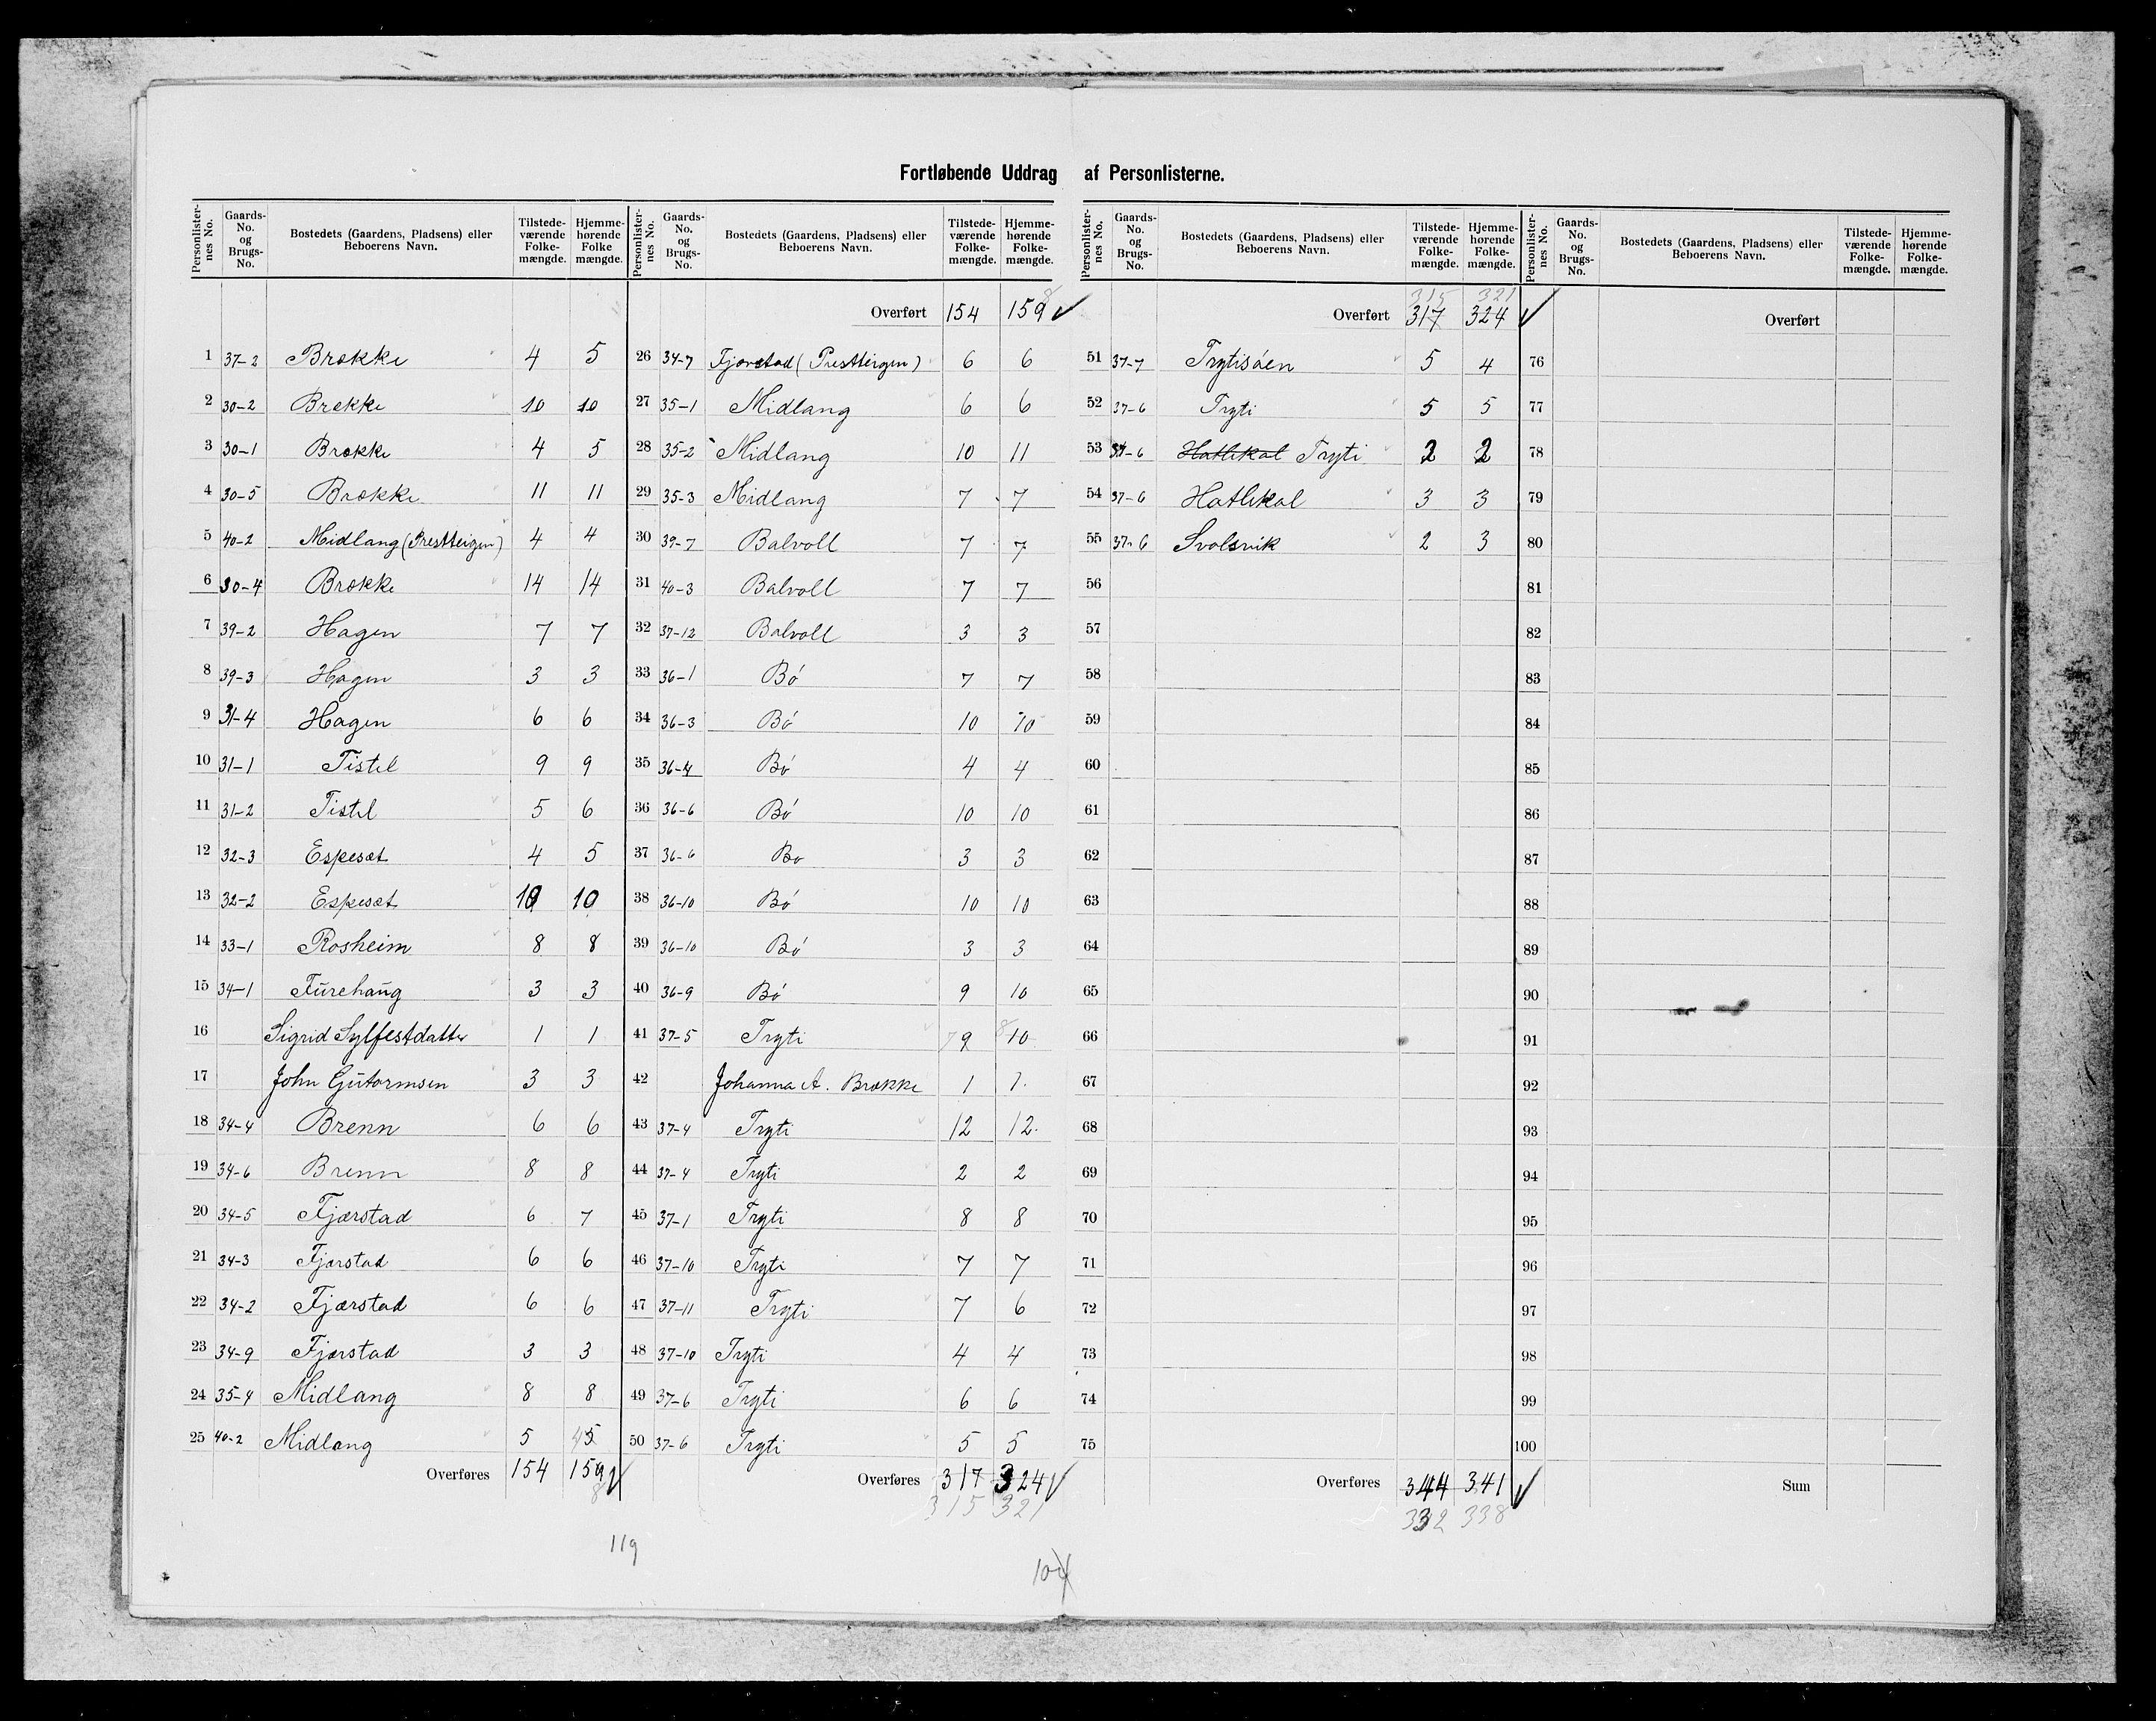 Fortløbende Uddrag af Personlisterne.
Personlister-nes No. | Gaards-No. og Brugs-No. | Bostedets (Gaardens, Pladsens) eller Beboerens Navn. | Tilstede-værende Folke-mængde. | Hjemme-hørende Folke mængde.
1 37-2 Brekke 4 5
2 30-2 Brekke 10 10
3 30-1 Brekke 4 5
4 30-5 Brekke 11 11
5 40-2 Midlang (Prestteigen) 4 4
6 30-4 Brekke 14 14
7 39-2 Hagen 7 7
8 39-3 Hagen 3 3
9 31-4 Hagen 6 6
10 31-1 Tistel 9 9
11 31-2 Tistel 5 6
12 32-3 Espeset 4 5
13 32-2 Espeset 10 10
14 33-1 Rosheim 8 8
15 34-1 Fŭrehaŭg 3 3
16 Sigrid Sylfestdatter 1 1
17 John Gŭtormsen 3 3
18 34-4 Brenn 6 6
19 34-6 Brenn 8 8
20 34-5 Fjærstad 6 7
21 34-3 Fjærstad 6 6
22 34-2 Fjærstad 6 6
23 34-9 Fjærstad 3 3
24 35-4 Midlang 8 8
25 40-2 Midlang 5 4 5
Overføres 154 159 8
Personlister-nes No. | Gaards-No. og Brugs-No. | Bostedets (Gaardens, Pladsens) eller Beboerens Navn. | Tilstede-værende Folke-mængde. | Hjemme-hørende Folke-mængde.
Overført 154 159 8
26 34-7 Fjærstad (Prestteigen) 6 6
27 35-1 Midlang 6 6
28 35-2 Midlang 10 11
29 35-3 Midlang 7 7
30 39-7 Balvoll 7 7
31 40-3 Balvoll 7 7
32 37-12 Balvoll 3 3
33 36-1 Bó 7 7
34 36-3 Bó 10 10
35 36-4 Bó 4 4
36 36-6 Bó 10 10
37 36-6 Bo 3 3
38 36-10 Bó 10 10
39 36-10 Bó 3 3
40 36-9 Bó 9 10
41 37-5 Tryti 7 9 8 10
42 Johanna A. Brække 1 1
43 37-4 Tryti 12 12
44 37-4 Tryti 2 2
45 37-1 Tryti 8 8
46 37-10 Tryti 7 7
47 37-11 Tryti 7 6
48 37-10 Tryti 4 4
49 37-6 Tryti 6 6
50 37-6 Tryti 5 5
Overføres 317 324
315 321
119
104
Personlister-nes No. | Gaards-No. og Brugs-No. | Bostedets (Gaardens, Pladsens) eller Beboerens Navn. | Tilstede-værende Folke-mængde. | Hjemme-hørende Folke-mængde.
315 321
Overført 317 324
51 37-7 Trytisóen 5 4
52 37-6 Tryti 5 5
53 37-6 Hatlekol Tryti 2 2
54 37-6 Hatlekol 3 3
55 37-6 Svolsvik 2 3
56
57
58
59
60
61
62
63
64
65
66
67
68
69
70
71
72
73
74
75
Overføres 344 341
332 338
Personlister-nes No. | Gaards-No. og Brugs-No. | Bostedets (Gaardens, Pladsens) eller Beboerens Navn. | Tilstede-værende Folke-mængde. | Hjemme-hørende Folke-mængde.
Overført
76
77
78
79
80
81
82
83
84
85
86
87
88
89
90
91
92
93
94
95
96
97
98
99
100
Sum